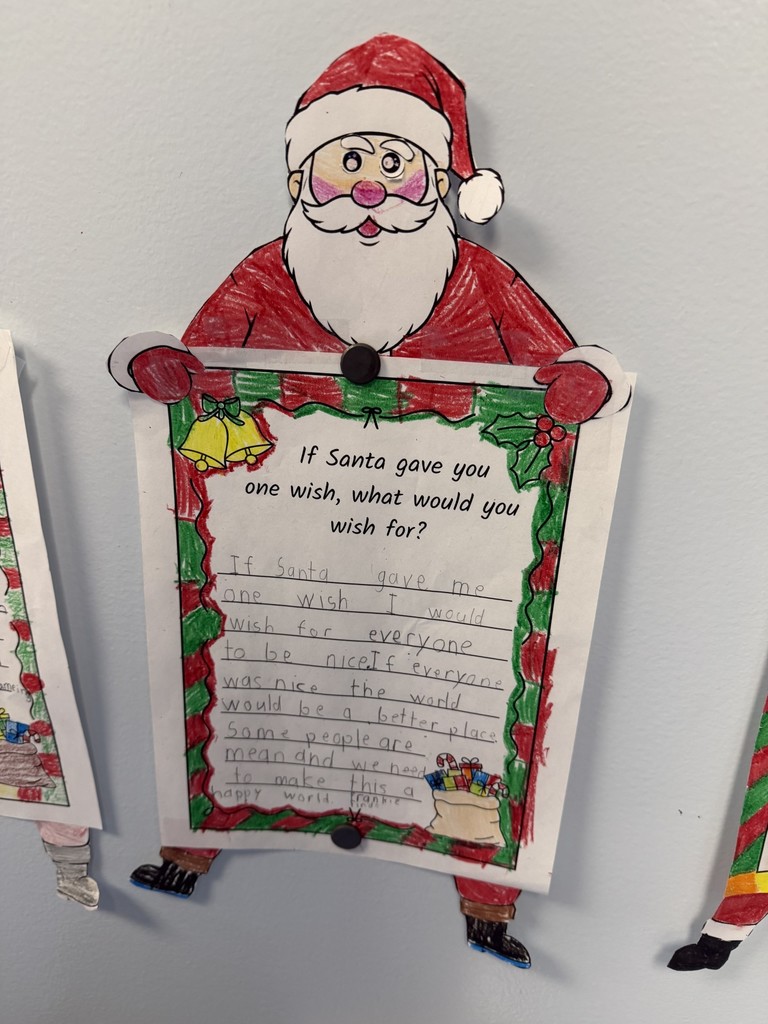 If Santa gave you
one wish, what would you
wish for?
If Santa gave me
one wish I would
wish for everyone
to be nice. If everyone
was nice the world
would be a better place
Some people are
mean and we need
to make this a
happy world. Frankie